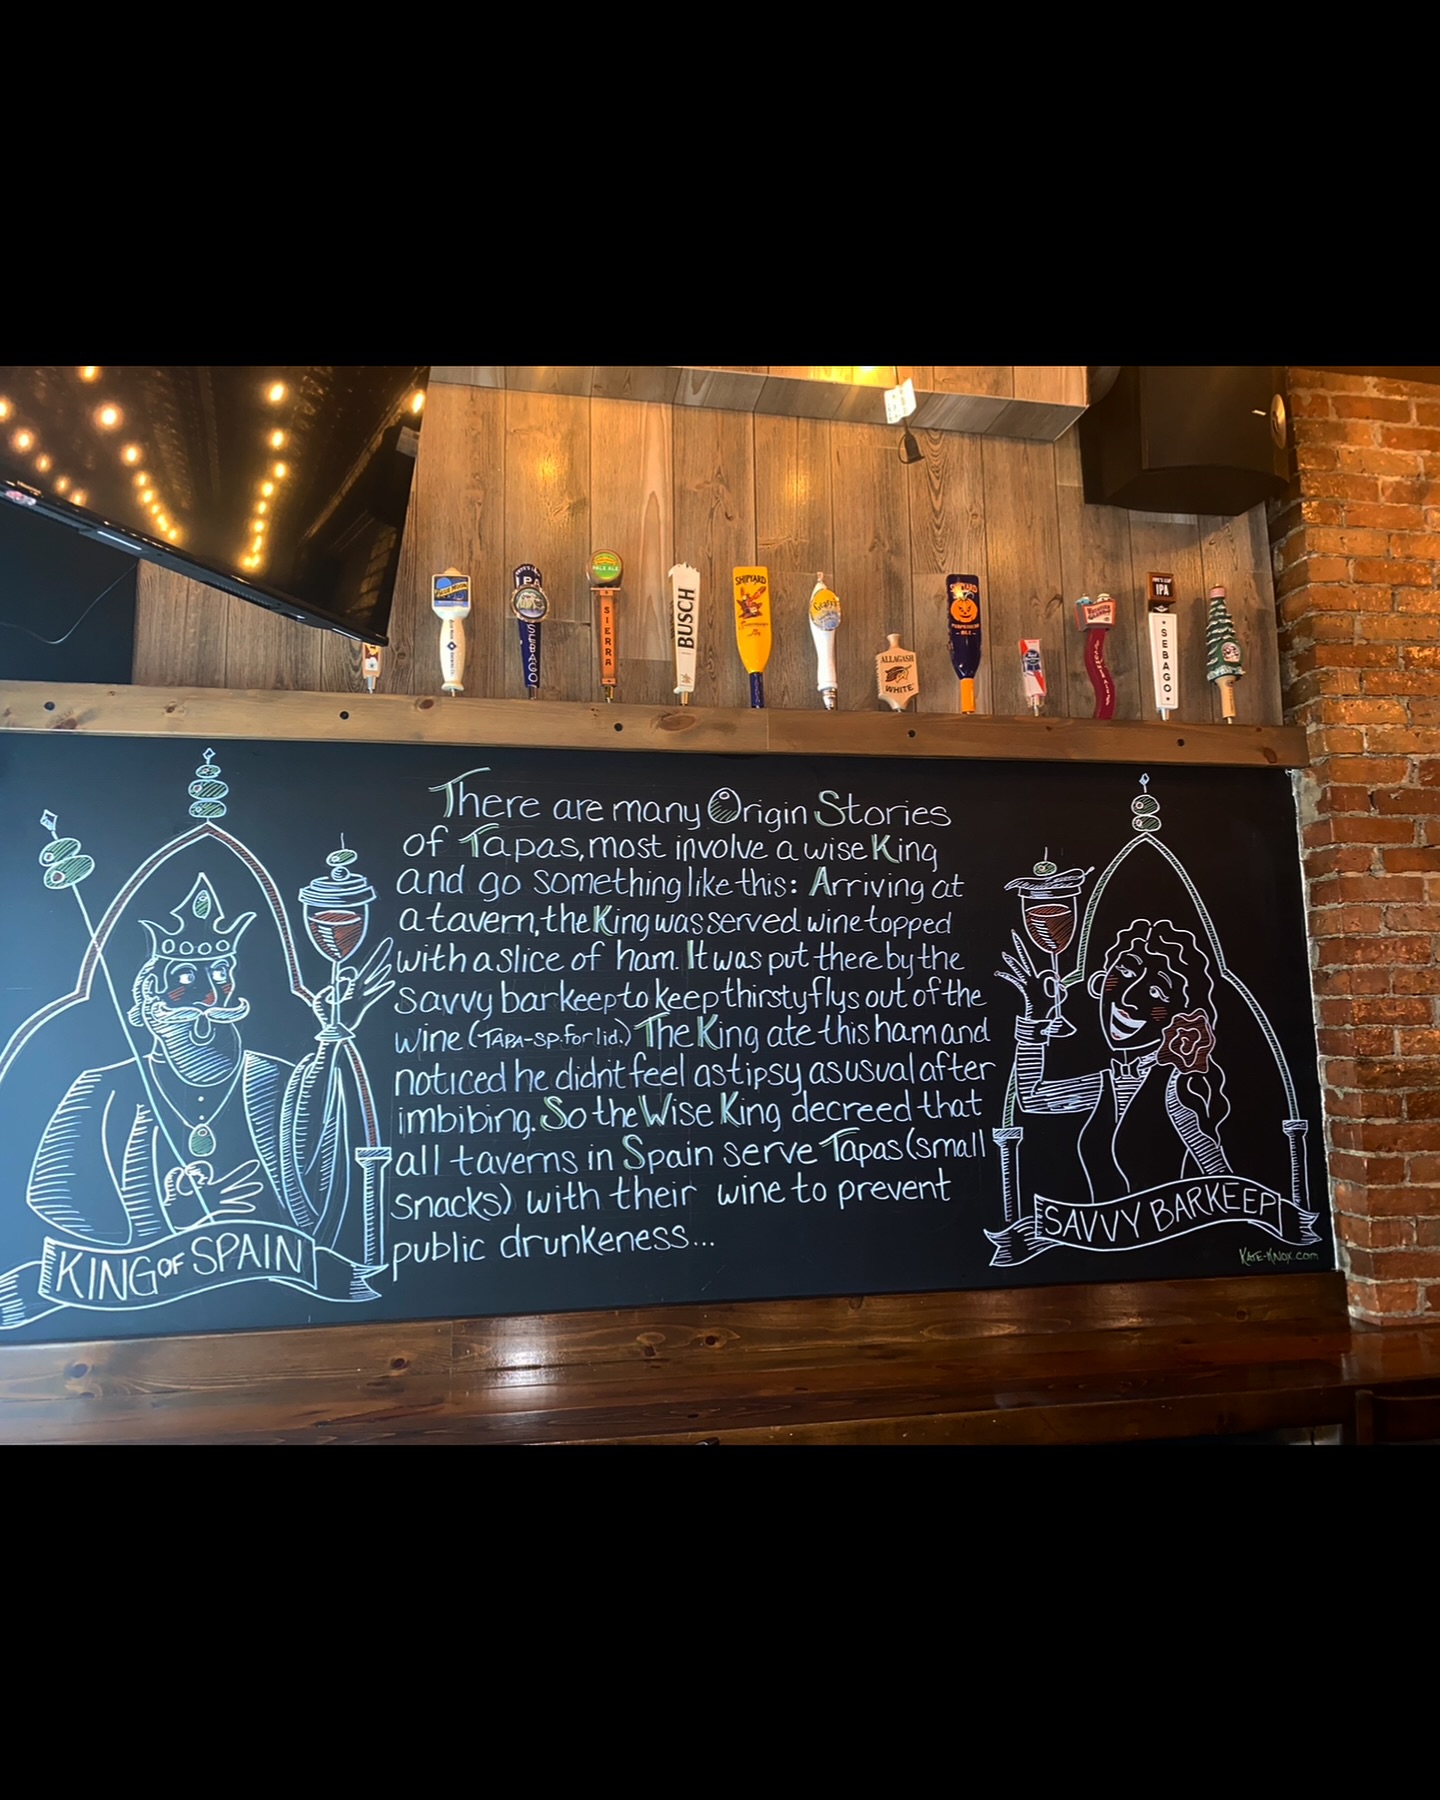 BLUE MOON
IPA
SEBAGO
PALE ALE
SIERRA
BUSCH
SHIPYARD
ALLAGASH
WHITE
SHIPYARD
PUMPKINHEAD
ALE
IPA
SEBAGO
There are many Origin Stories
of Tapas, most involve a wise King
and go something like this: Arriving at
a tavern, the King was served wine topped
with a slice of ham. It was put there by the
savvy barkeep to keep thirsty flys out of the
wine (TAPA-SP. for lid.) The King ate this ham and
noticed he didnt feel as tipsy as usual after
imbibing. So the Wise King decreed that
all taverns in Spain serve Tapas (small
snacks) with their wine to prevent
public drunkeness...
KING OF SPAIN
SAVVY BARKEEP
KATE-KNOX.com